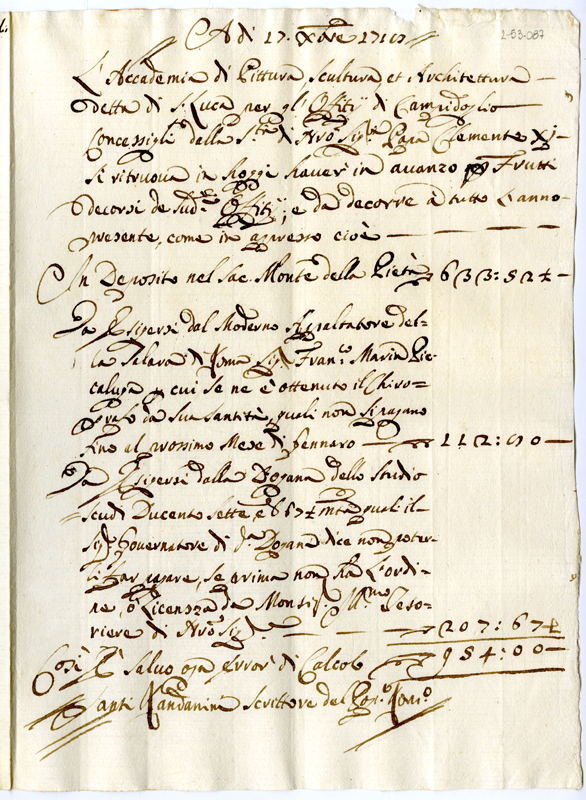 2-53-087
A di 17. Xbre 1710
L'Accademia di Pittura Scultura et Architettura
detta di S. Luca per gl'Offitij di Campidoglio
Concessigli dalla S.tà di N'ro Sig.re Papa Clemente XI
Si ritruova in hoggi haveri in avanzo p Frutti
decorsi de sud.i Offitij, e da decorre à tutto l'anno
presente, come in appresso cioè
In Deposito nel Sac. Monte della Pietà 633:52½
Da Esigersi dal Moderno Appaltatore del-
la Salara di Roma Sig. Fran.co Maria Pic-
caluga p cui se ne è ottenuto il Chiro-
grafo da Sua Santità, quali non si pagano
fino al prossimo Mese di Gennaro 112:80
Da Esigersi dalla Dogana dello Studio
scudi Ducento sette, e 67½ mta quali il
Sig. Governatore di d.a Dogana dice non poter-
li far pagare, se prima non hà l'ordi-
ne, ò Licenza da Monsig. Ill.mo Teso-
riere di N'ro Sig.re 207:67½
Così è salvo ogni Errori di Calcolo 954:00
Santi Randanini scrittore del